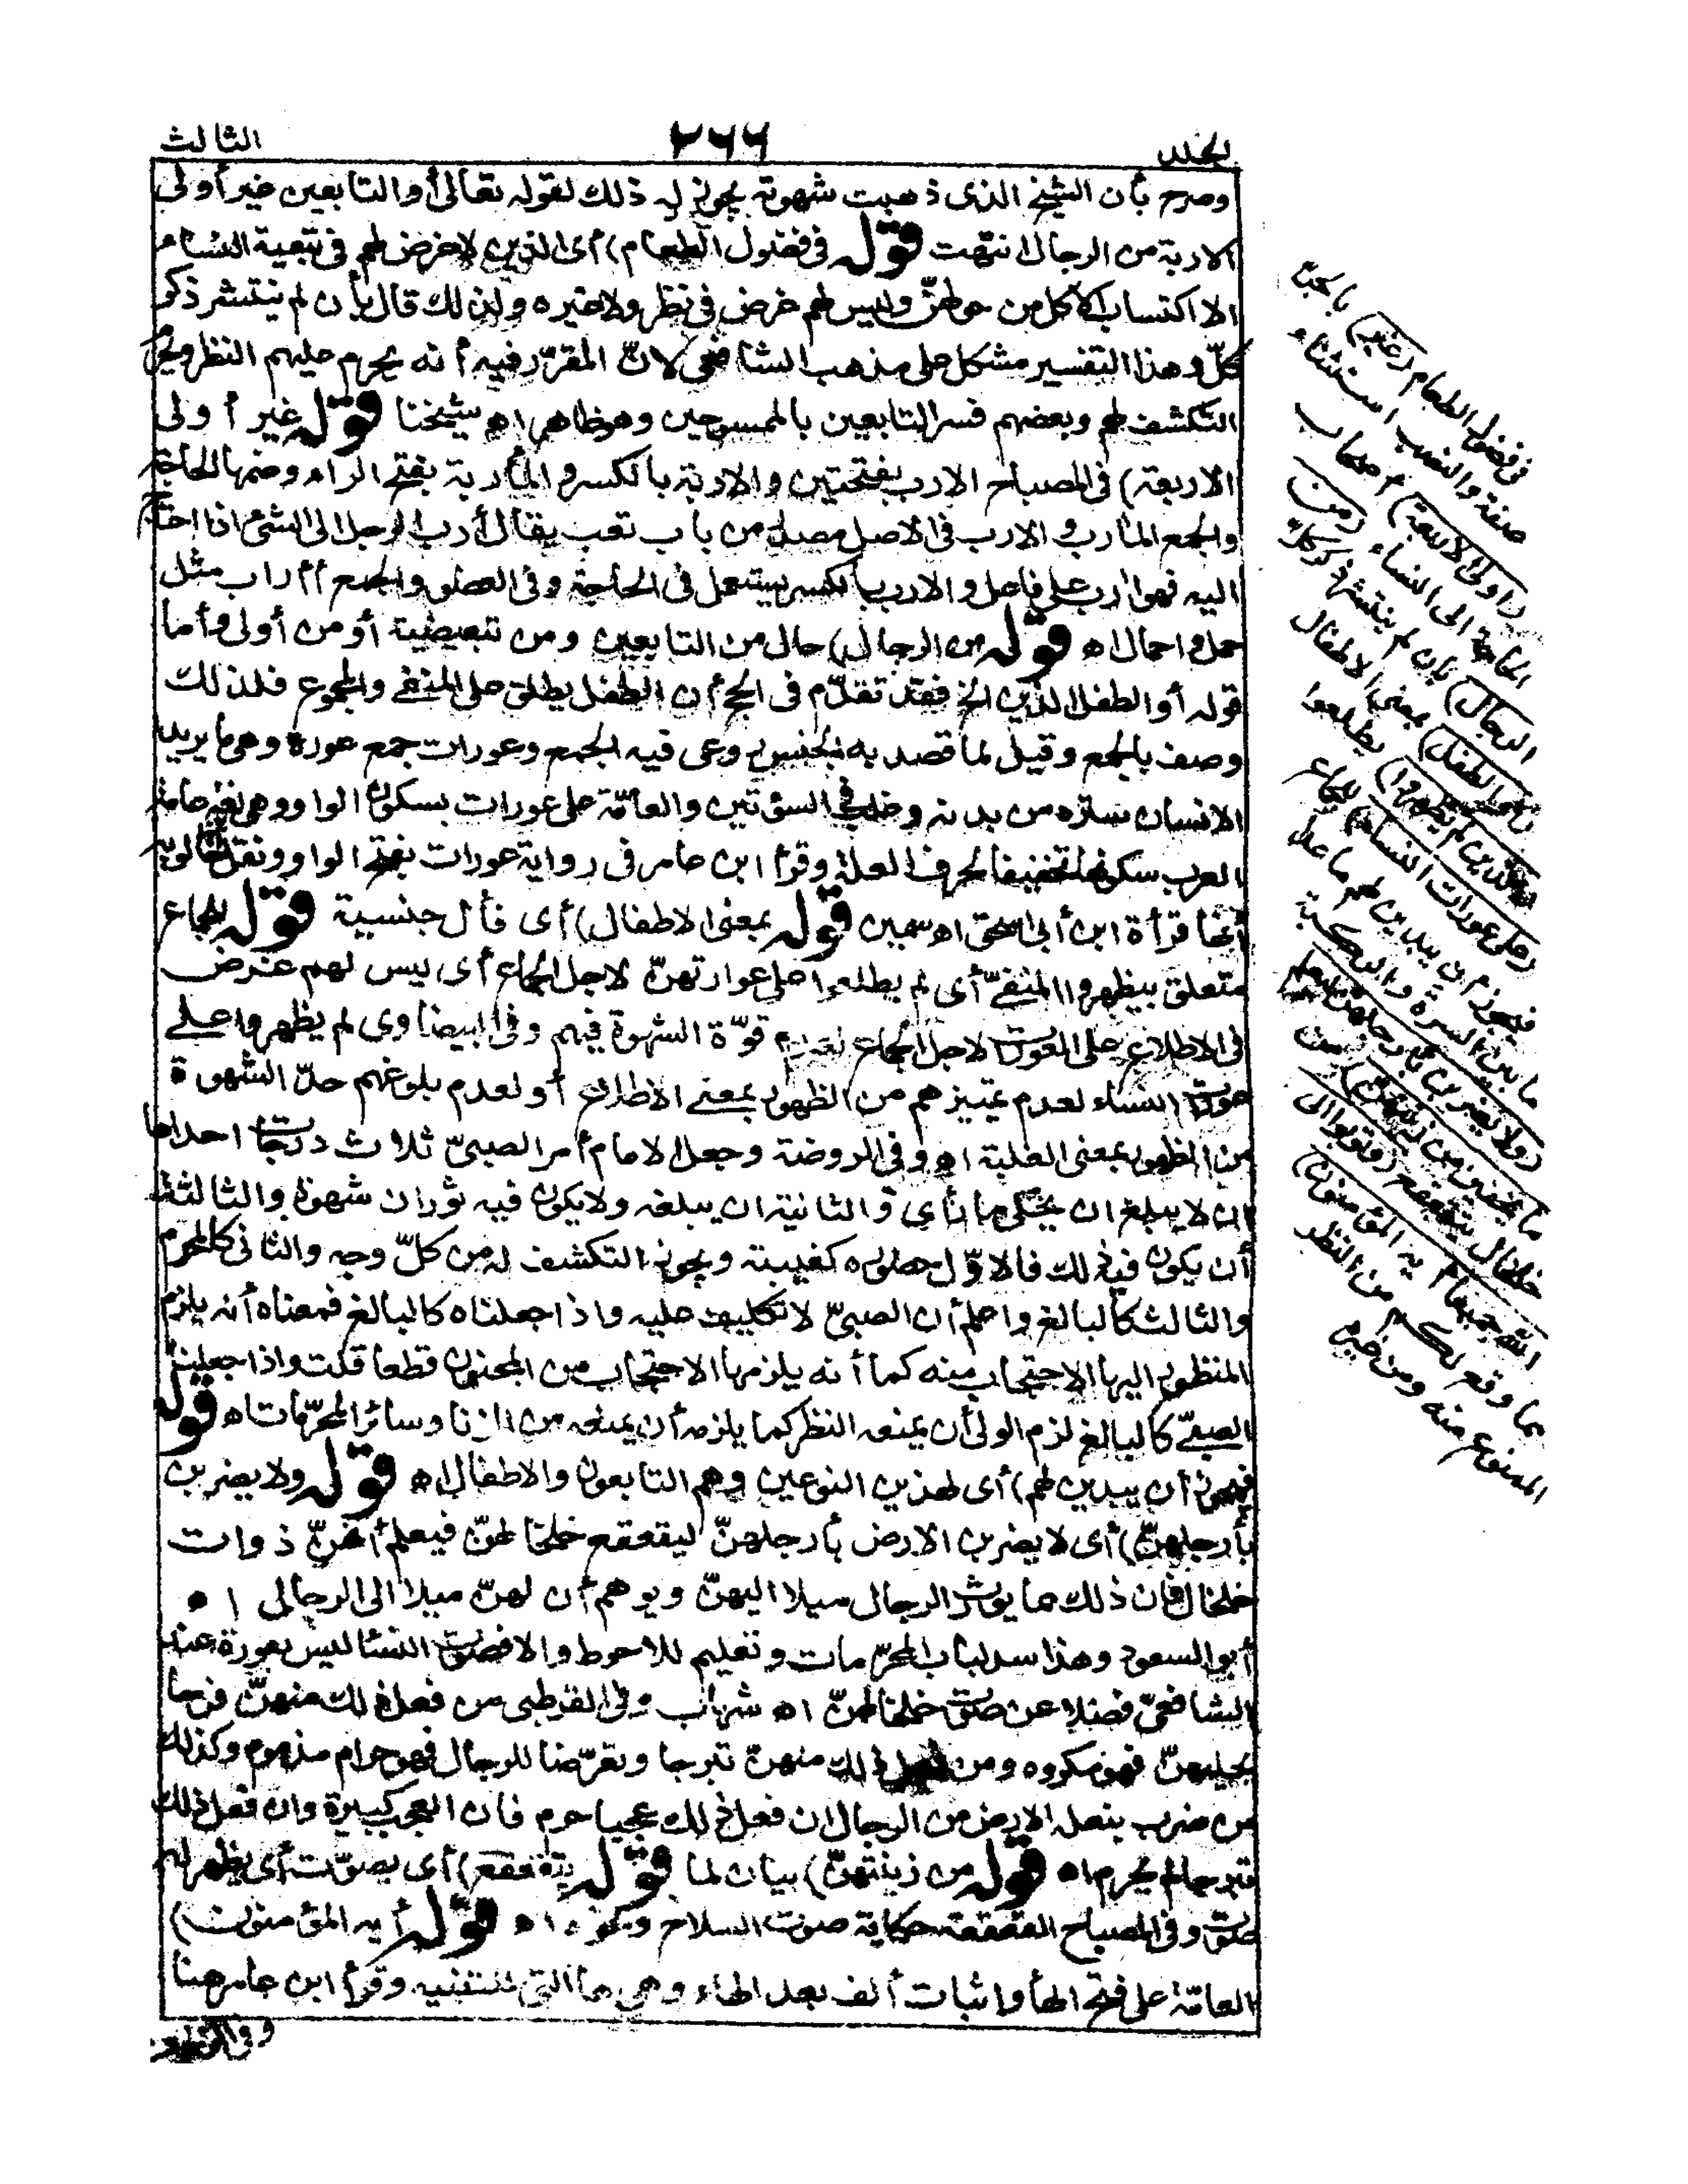 الجلد
٢٦٦
الثالث
وصرح بأن الشيخ الذى ذهبت شهوته يجوز له ذلك لقوله تعالى أو التابعين غير أولى
الاربة من الرجال انتهت قوله فى فضول الطعام) أى الذين لا غرض لهم فى تبعية النساء
الا اكتساب الاكل من وليس لهم غرض فى نظر ولا غيره ولذلك قال بأن لم ينتشر ذكر
كلّ وهذا التفسير مشكل على مذهب الشافعى لانّ المقرّر فيه أنه يحرم عليهم النظر ويحرم
التكشف لهم وبعضهم فسر التابعين بالممسوحين وهو ظاهر اه شيخنا قوله غير أولى
الاربعة) فى المصباح الارب بفتحتين والاربة بالكسر والمأربة بفتح الراء وضمها الحاجة
والجمع المآرب والارب فى الاصل مصدر من باب تعب يقال أرب الرجل الى الشئ اذا احتاج
اليه فهو آرب على فاعل والارب بالكسر يستعمل فى الحاجة وفى العضو والجمع أاراب مثل
حمل واحمال اه قوله من الرجال) حال من التابعين ومن تبعيضية أو من أولى وأما
قوله أو الطفل الذين الخ فقد تقدّم فى الحج أن الطفل يطلق على المثنى والمجموع فلذلك
وصف بالجمع وقيل لما قصد به الجنس روعى فيه الجمع وعورات جمع عورة وهو ما يريد
الانسان ستره من بدنه وغلب فى السؤتين والعامّة على عورات بسكون الواو وهى لغة عامة
العرب سكنوها تخفيفا لحرف العلة وقرأ ابن عامر فى رواية عورات بفتح الواو ونقل ابن خالويه
أنها قرأة ابن أبى اسحق اه سمين قوله بمعنى الاطفال) أى فأل جنسية قوله للجماع
متعلق بيظهروا المنفىّ أى لم يطلعوا على عوارتهنّ لاجل الجماع أى ليس لهم غرض
فى الاطلاع على العورات لاجل الجماع لعدم قوّة الشهوة فيهم وفى البيضاوى لم يظهروا على
عورات النساء لعدم تمييزهم من الظهور بمعنى الاطلاع أو لعدم بلوغهم حدّ الشهوة
من الظهور بمعنى الغلبة اه وفى الروضة وجعل الامام أمر الصبىّ ثلاث درجات احداها
ان لا يبلغ ان يحكى ما رأى والثانية ان يبلغه ولا يكون فيه ثوران شهوة والثالثة
أن يكون فيه ذلك فالاوّل حضوره كغيبته ويجوز التكشف له من كلّ وجه والثانى كالمحرم
والثالث كالبالغ واعلم أن الصبىّ لا تكليف عليه واذا جعلناه كالبالغ فمعناه أنه يلزم
المنظور اليها الاحتجاب منه كما أنه يلزمها الاحتجاب من المجنون قطعا قلت واذا جعلنا
الصبىّ كالبالغ لزم الولى أن يمنعه النظر كما يلزمه أن يمنعه من الزنا وسائر المحرّمات اه قوله
فيجوز أن يبدين لهم) أى لهذين النوعين وهم التابعون والاطفال اه قوله ولا يضربن
بأرجلهنّ) أى لا يضربن الارض بأرجلهنّ ليقعقع خلخالهنّ فيعلم أنهنّ ذوات
خلخال فان ذلك مما يورث الرجال ميلا اليهنّ ويوهم أن لهنّ ميلا الى الرجال اه
أبو السعود وهذا سد لباب المحرّمات وتعليم للاحوط والا فصوت النساء ليس بعورة عند
الشافعىّ فضلا عن صوت خلخالهنّ اه شهاب وفى القرطبى من فعل ذلك منهنّ فرحا
بحليهنّ فهو مكروه ومن فعل ذلك منهنّ تبرجا وتعرّضا للرجال فهو حرام مذموم وكذلك
من ضرب بنعله الارض من الرجال ان فعل ذلك عجبا حرم فان العجب كبيرة وان فعل ذلك
تبرجا لم يحرم اه قوله من زينتهنّ) بيان لما قوله يتقعقع) أى يصوّت أى يظهر له
صوت وفى المصباح القعقعة حكاية صوت السلاح ونحوه اه قوله أيه المؤمنون)
العامّة على فتح الهأ واثبات ألف بعد الهاء وهى ها التى للتنبيه وقرأ ابن عامر هنا
فى فضول الطعام (غير) بالجرّ
صفة والنصب استثناء
(أولى الاربعة) أصحاب
الحاجة الى النساء (من
الرجال) بأن لم ينتشر ذكر كلّ
(أو الطفل) بمعنى الاطفال
(الذين لم يظهروا) يطلعوا
(على عورات النساء) للجماع
فيجوز أن يبدين لهم ما عدا
ما بين السرة والركبة
(ولا يضربن بأرجلهنّ ليعلم
ما يخفين من زينتهنّ) من
خلخال يتقعقع (وتوبوا الى
الله جميعا أيه المؤمنون)
مما وقع لكم من النظر
الممنوع منه ومن غيره